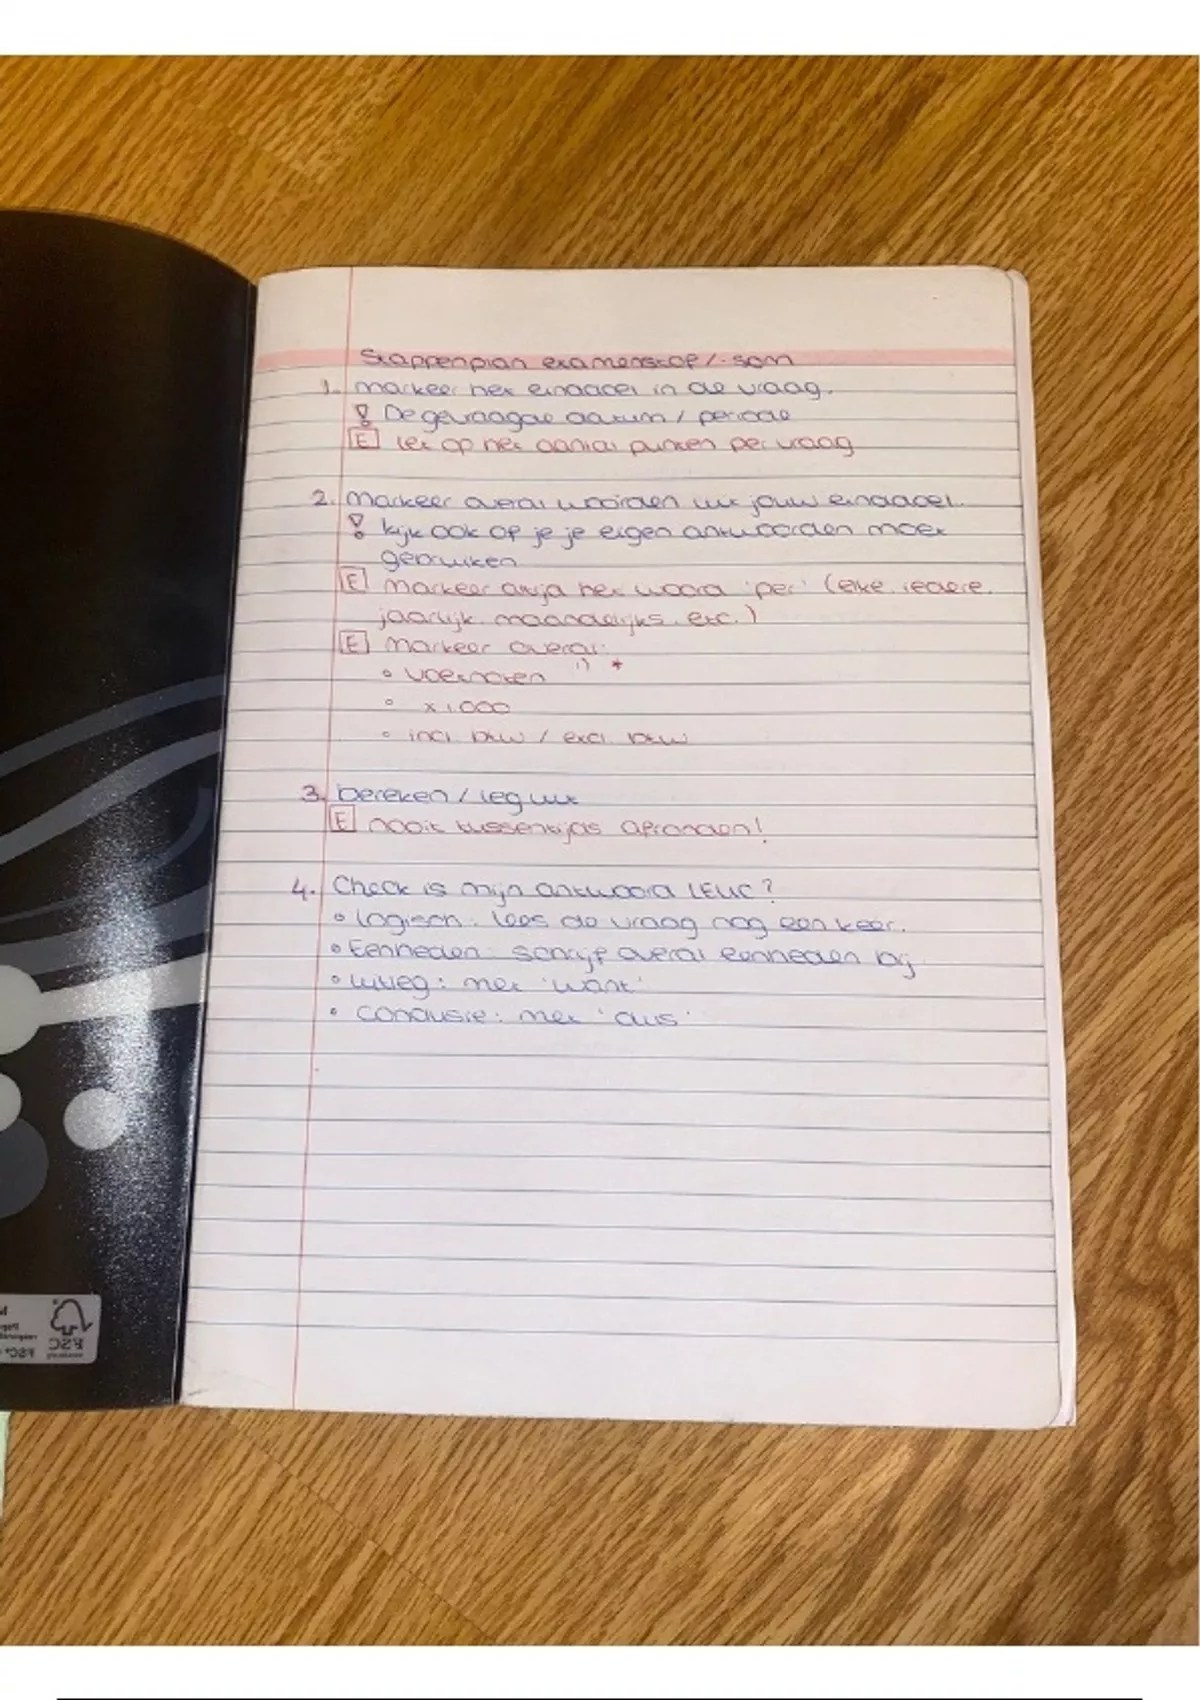 Stappenplan examenstof / -som
1. markeer het einddoel in de vraag.
! De gevraagde datum / periode
E let op het aantal punten per vraag
2. markeer overal woorden uit jouw einddoel.
! kijk ook of je je eigen antwoorden moet
gebruiken
E markeer altijd het woord 'per' (elke, iedere,
jaarlijk, maandelijks, etc.)
E markeer overal:
◦ voetnoten 1) *
◦ x 1.000
◦ incl. btw / excl. btw
3. bereken / leg uit
E nooit tussentijds afronden!
4. Check is mijn antwoord LEUC?
◦ Logisch: lees de vraag nog een keer.
◦ Eenheden: schrijf overal eenheden bij
◦ uitleg: met 'want'
◦ conclusie: met 'dus'
FSC